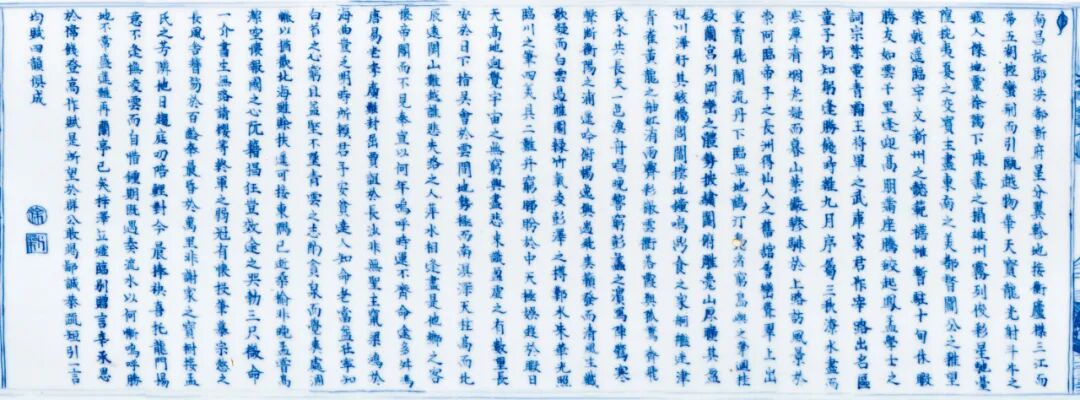 南昌故郡洪都新府星分翼軫地接衡廬襟三江而
帶五湖控蠻荊而引甌越物華天寶龍光射斗牛之
墟人傑地靈徐孺下陳蕃之榻雄州霧列俊彩星馳臺
隍枕夷夏之交賓主盡東南之美都督閻公之雅望
棨戟遙臨宇文新州之懿範襜帷暫駐十旬休暇
勝友如雲千里逢迎高朋滿座騰蛟起鳳孟學士之
詞宗紫電青霜王將軍之武庫家君作宰路出名區
童子何知躬逢勝餞時維九月序屬三秋潦水盡而
寒潭清烟光凝而暮山紫儼驂騑於上路訪風景於
崇阿臨帝子之長洲得仙人之舊館層巒聳翠上出
重霄飛閣流丹下臨無地鶴汀渚窮島嶼之縈迴桂
殿蘭宮列岡巒之體勢披繡闥俯雕甍山原曠其盈
視川澤紆其駭矚閭閻撲地鐘鳴鼎食之家舸艦迷津
青雀黃龍之舳虹消雨霽彩徹雲衢落霞與孤鶩齊飛
秋水共長天一色漁舟唱晚響窮彭蠡之濱鴈陣驚寒
聲斷衡陽之浦遙吟俯暢逸興遄飛爽籟發而清風生纖
歌凝而白雲遏睢園綠竹氣凌彭澤之樽鄴水朱華光照
臨川之筆四美具二難并窮睇眄於中天極娛遊於暇日
天高地迥覺宇宙之無窮興盡悲來識盈虛之有數望長
安於日下指吳會於雲間地勢極而南溟深天柱高而北
辰遠關山難越誰悲失路之人萍水相逢盡是他鄉之客
懷帝閽而不見奉宣室以何年嗚呼時運不齊命途多舛馮
唐易老李廣難封屈賈誼於長沙非無聖主竄梁鴻於
海曲豈乏明時所賴君子安貧達人知命老當益壯寧知
白首之心窮且益堅不墜青雲之志酌貪泉而覺爽處涸
轍以猶歡北海雖賒扶遙可接東隅已逝桑榆非晚孟嘗高
潔空懷報國之心阮籍猖狂豈效途窮之哭勃三尺微命
一介書生無路請纓等終軍之弱冠有懷投筆慕宗愨之
長風舍簪笏於百齡奉晨昏於萬里非謝家之寶樹接孟
氏之芳隣他日趨庭叨陪鯉對今晨捧袂喜托龍門楊
意不逢撫凌雲而自惜鍾期既遇奏流水以何慚嗚呼勝
地不常盛筵難再蘭亭已矣梓澤丘墟臨別贈言幸承恩
於偉餞登高作賦是所望於群公敢竭鄙誠恭疏短引一言
均賦四韻俱成